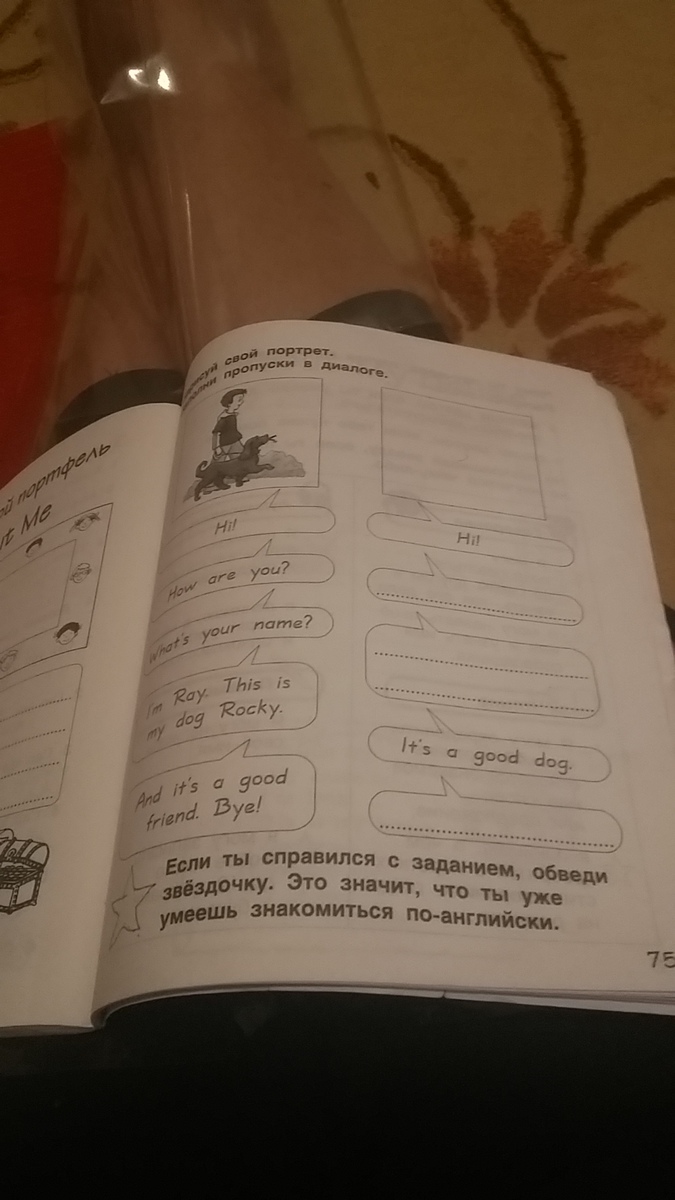 свой портрет.
пропуски в диалоге.
портфель
Me
Hi!
How are you?
What's your name?
I'm Ray. This is
my dog Rocky.
And it's a good
friend. Bye!
Hi!
It's a good dog.
Если ты справился с заданием, обведи
звёздочку. Это значит, что ты уже
умеешь знакомиться по-английски.
75